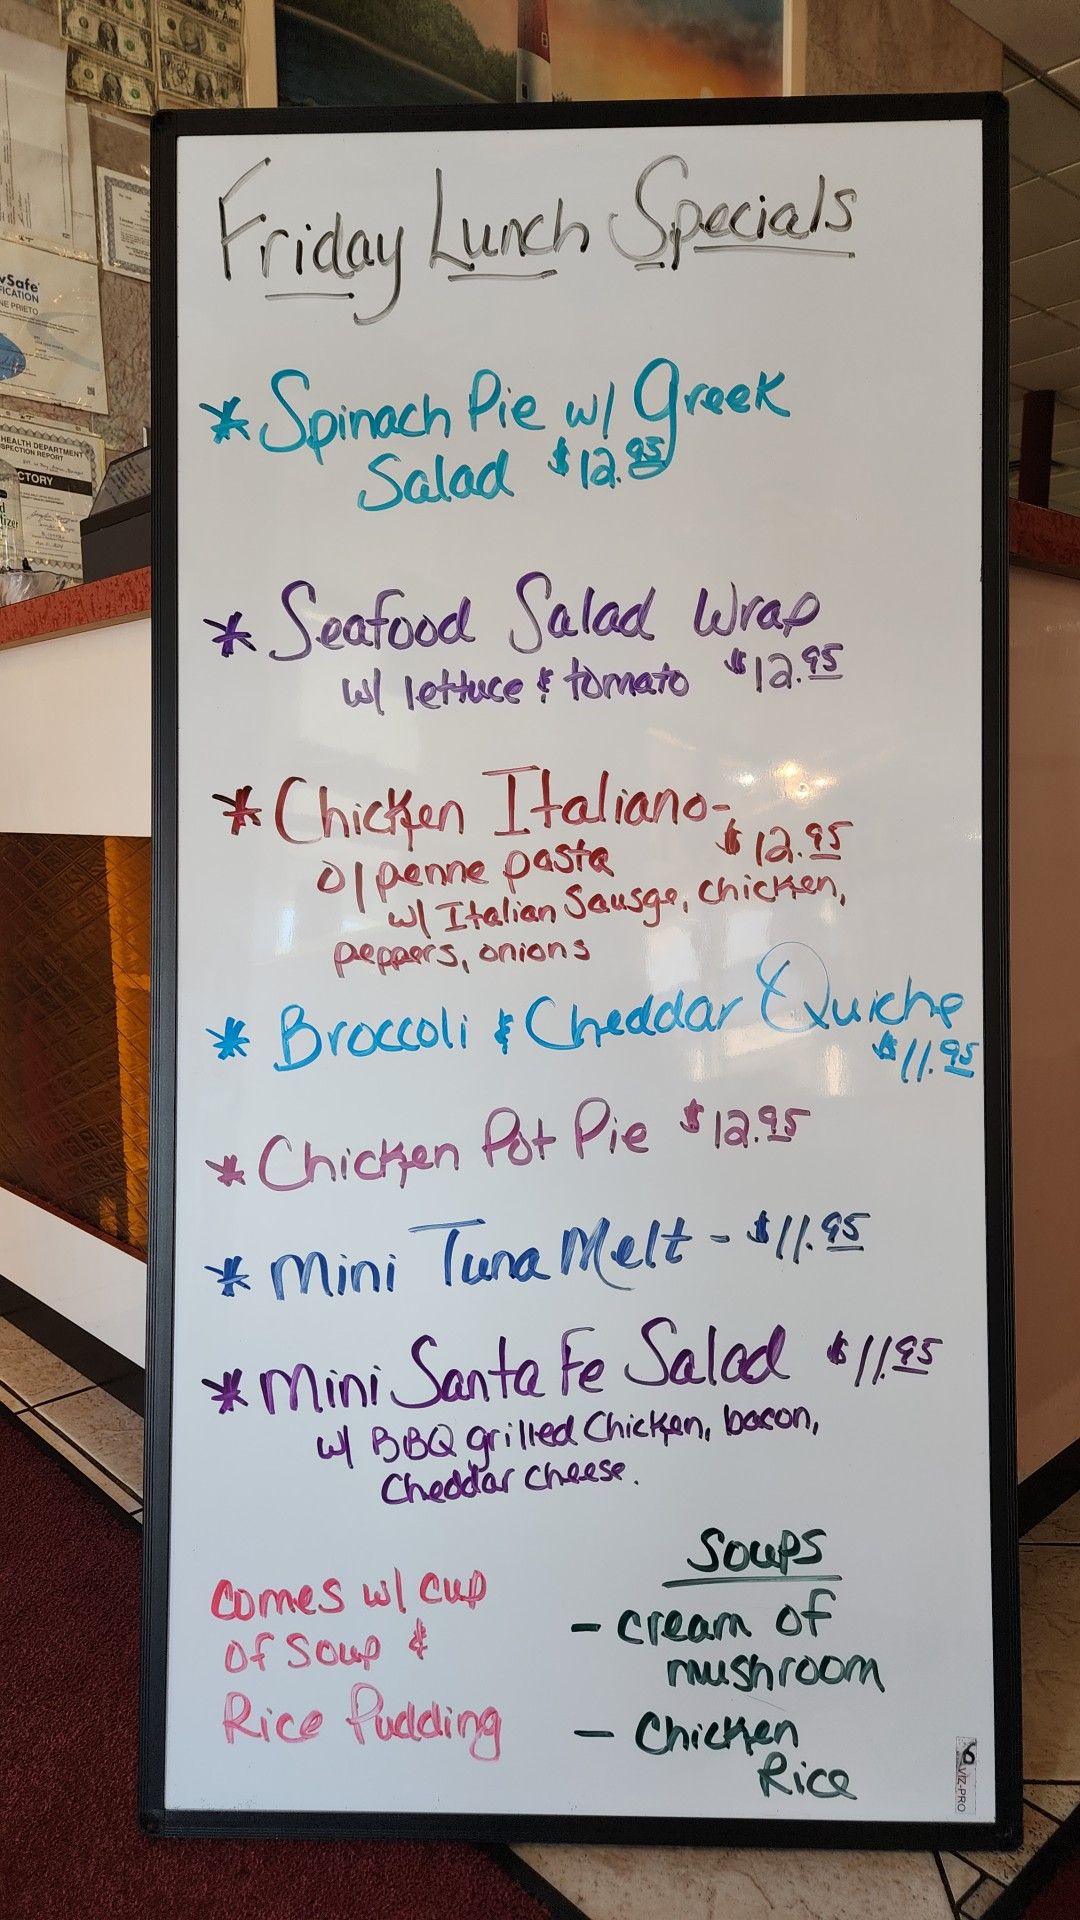 Friday Lunch Specials
* Spinach Pie w/ Greek
Salad $12.95
* Seafood Salad Wrap
w/ lettuce & tomato $12.95
* Chicken Italiano-
$12.95
o/ penne pasta
w/ Italian Sausge, chicken,
peppers, onions
* Broccoli & Cheddar Quiche
$11.95
* Chicken Pot Pie $12.95
* Mini Tuna Melt - $11.95
* Mini Santa Fe Salad $11.95
w/ BBQ grilled Chicken, bacon,
Cheddar cheese.
comes w/ cup
of soup &
Rice Pudding
Soups
- cream of
mushroom
- Chicken
Rice
6
VIZ-PRO
vSafe
FICATION
NE PRIETO
HEALTH DEPARTMENT
SPECTION REPORT
CTORY